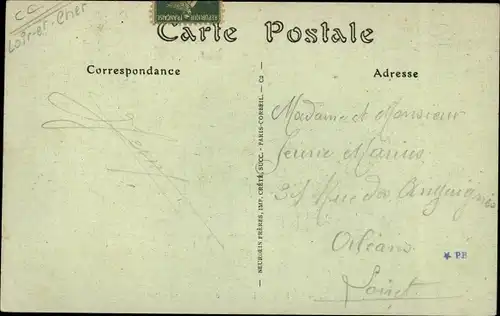 C C
Loir-et-Cher
REPUBLIQUE FRANÇAISE
Carte Postale
Correspondance
Adresse
NEURDEIN FRÈRES, IMP. CRÉTÉ, SUCC. - PARIS-CORBEIL. - C2
Madame et Monsieur
Marius
34 Rue des
Orléans
Loiret
* PB